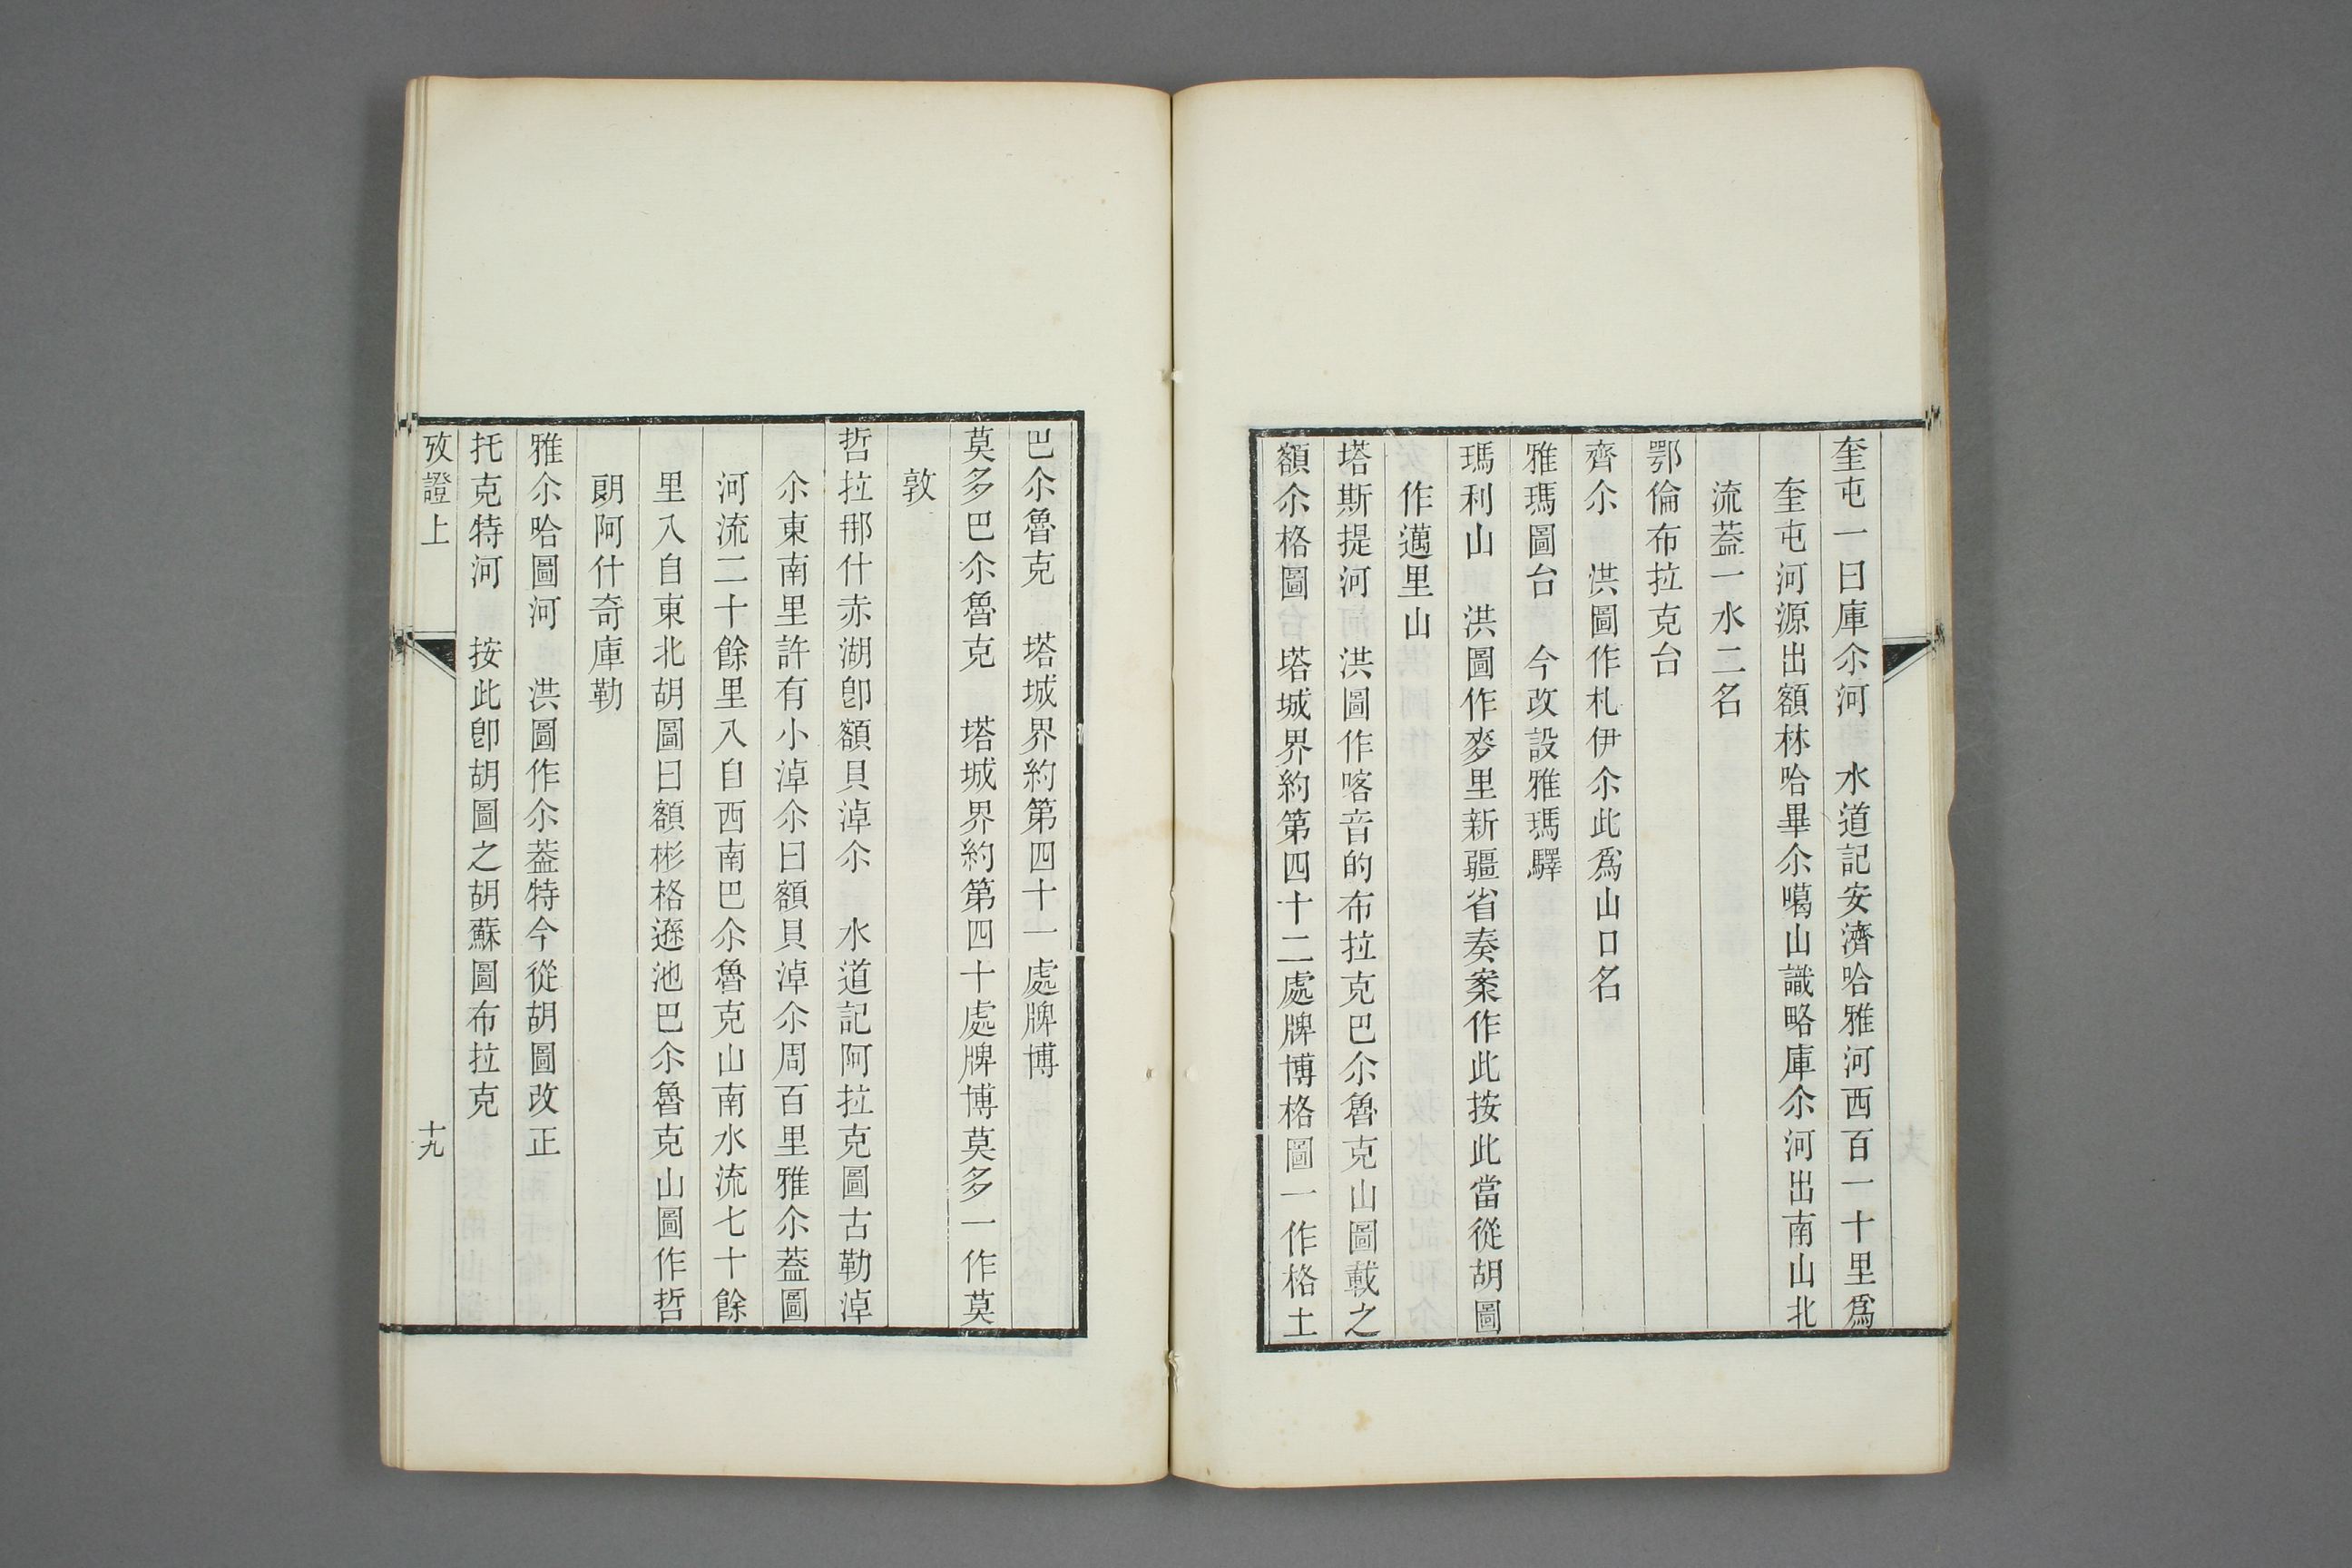 奎屯一曰庫尒河　水道記安濟哈雅河西百一十里爲
奎屯河源出額林哈畢尒噶山識略庫尒河出南山北
流葢一水二名
鄂倫布拉克台
齊尒　洪圖作札伊尒此爲山口名
雅瑪圖台　今改設雅瑪驛
瑪利山　洪圖作麥里新疆省奏案作此按此當從胡圖
作邁里山
塔斯提河　洪圖作喀音的布拉克巴尒魯克山圖載之
額尒格圖　塔城界約第四十二處牌博格圖一作格土
巴尒魯克　塔城界約第四十一處牌博
莫多巴尒魯克　塔城界約第四十處牌博莫多一作莫
敦
哲拉那什赤湖卽額貝淖尒　水道記阿拉克圖古勒淖
尒東南里許有小淖尒曰額貝淖尒周百里雅尒葢圖
河流二十餘里入自西南巴尒魯克山南水流七十餘
里入自東北胡圖曰額彬格遜池巴尒魯克山圖作哲
朗阿什奇庫勒
雅尒哈圖河　洪圖作尒葢特今從胡圖改正
托克特河　按此卽胡圖之胡蘇圖布拉克
攷證上
十九